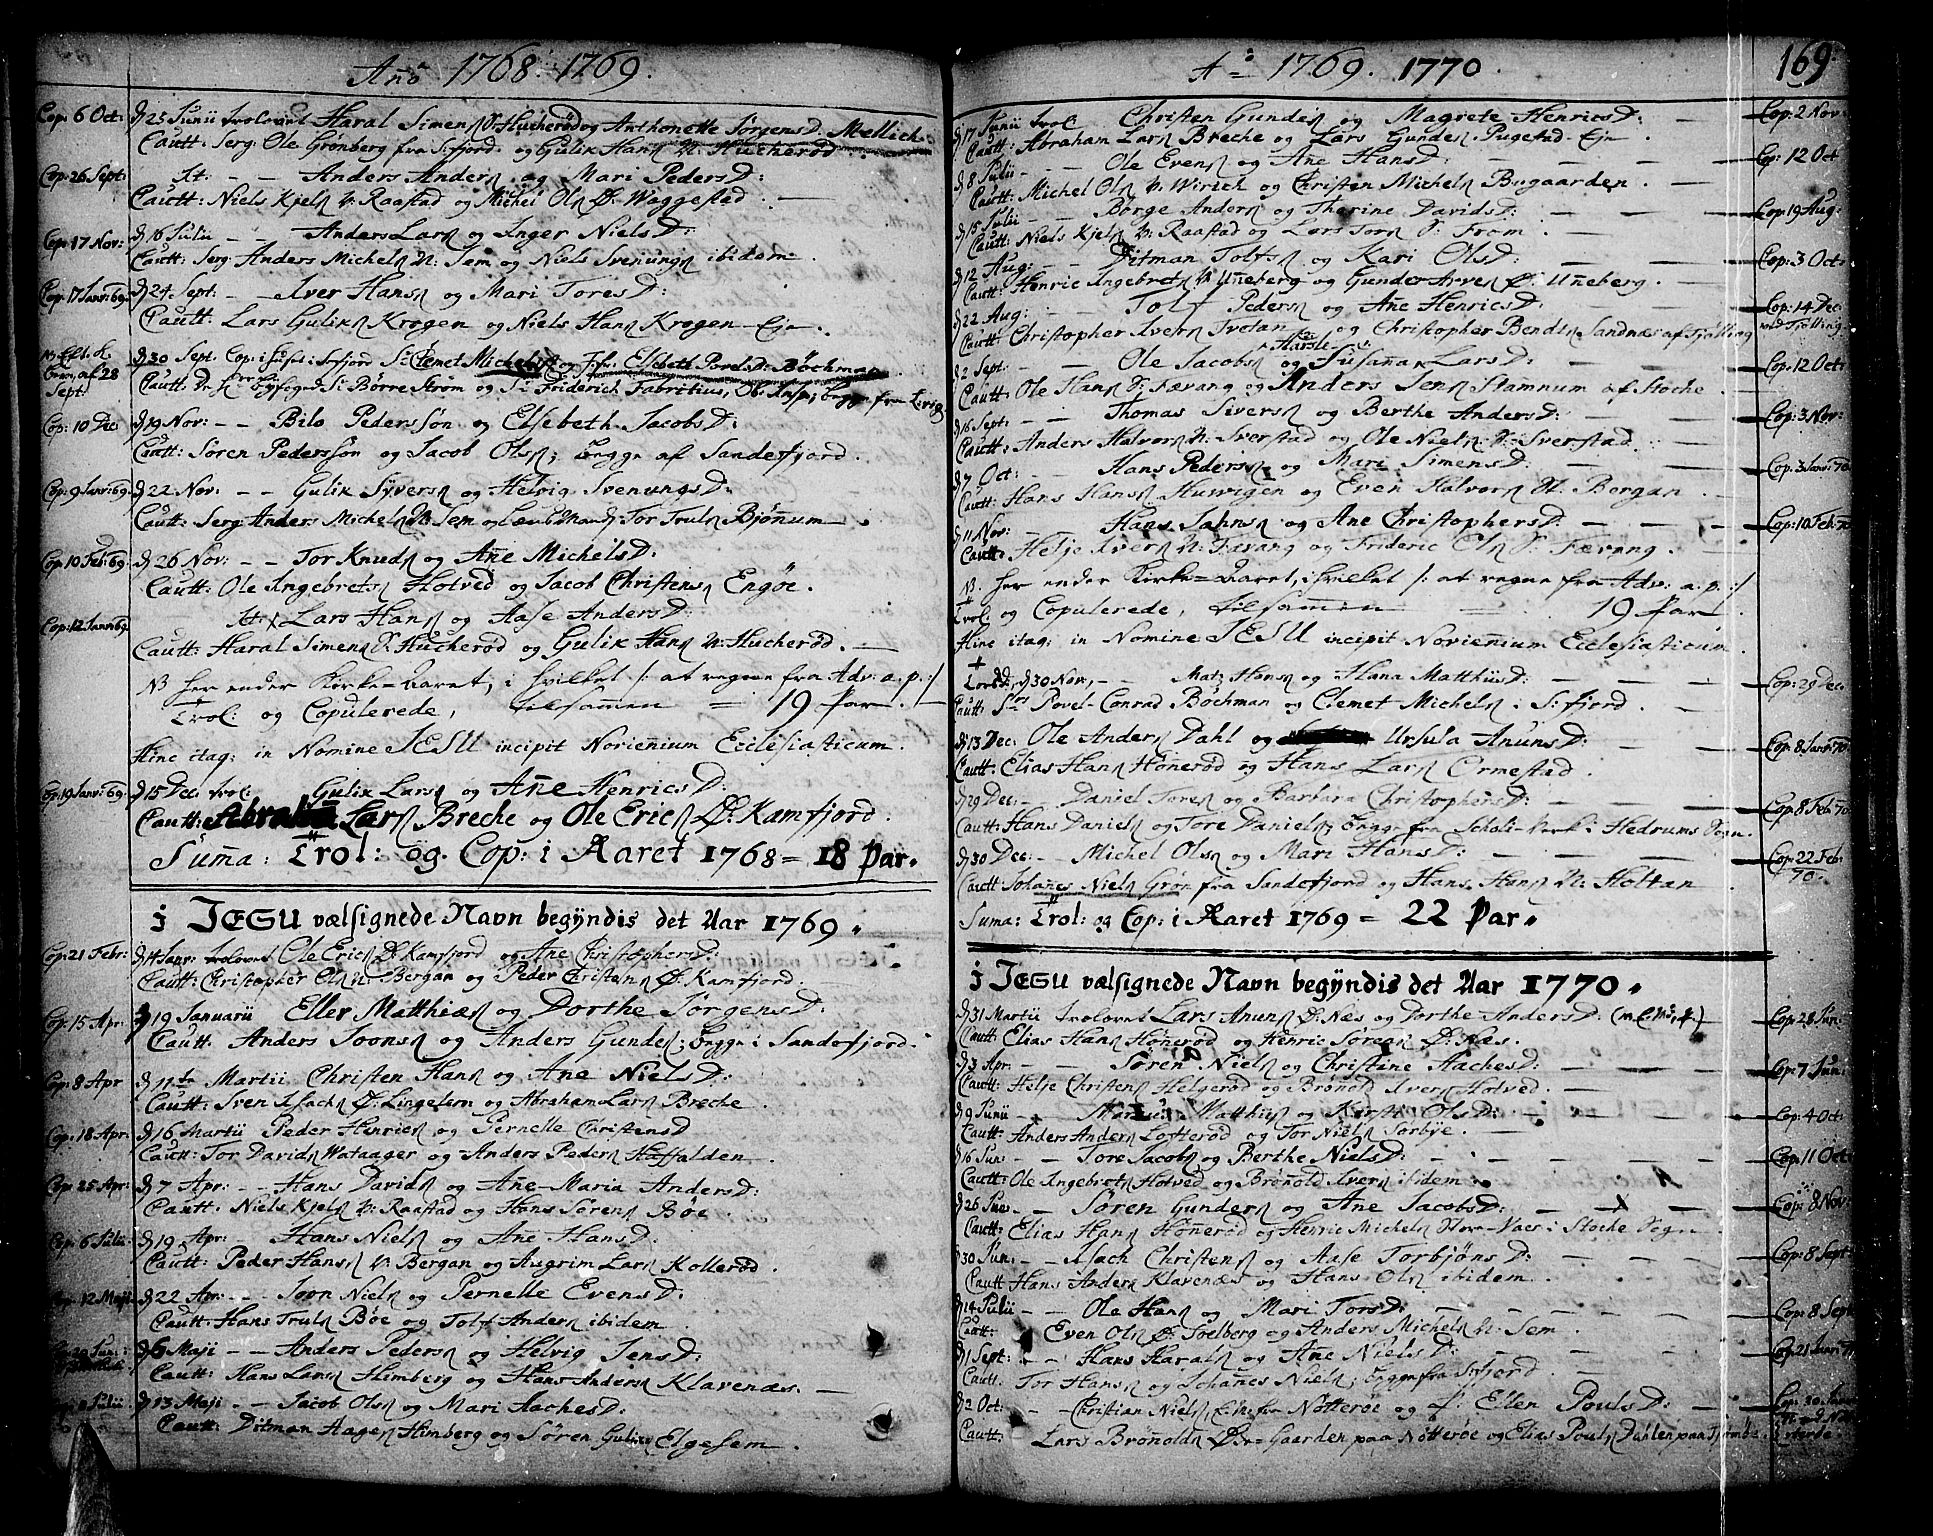 Año 1768. 1769.
Cop: 6 Oct: d 25 Junii trolovet Haral Simens S: Hucherød og Anthonette Jørgens D. Mellich:
Cautt: Serg Ole Grønberg fra S:fjord og Gulik Hans N: Hucherød.
Cop: 26 Sept: It: - Anders Anders og Mari Peders D:
Cautt: Niels Kjels N: Raastad og Michel Ols Ø: Waggestad.
Cop: 17 Nov: d 16 Julii - - Anders Lars og Inger Niels D:
Cautt: Serg: Anders Michels N: Sem og Niels Svenungs ibidem.
Cop: 17 Janv: 69. d 24 Sept: - Iver Hans og Mari Tores D:
Cautt: Lars Guliks Krogen og Niels Hans Krogen - Eje.
d 30 Sept. Cop: i S:fjord Sr Clemet Michels og Jfr: Elsebeth Povels D: Bøchman
28 Sept: Cautt: Sr Børre Strøm og Sr Friderich Fabritius, begge fra
Cop: 10 Dec: d 19 Nov: - - Bilo Pedersøn og Elsebeth Jacobs D:
Cautt: Søren Pedersøn og Jacob Ols; begge af Sandefjord.
Cop: 9 Janv: 69. d 22 Nov: - - Gulik Syvers og Helvig Svenungs D:
Cautt: Serg Anders Michels N: Sem og Tor Truls Bjønnum.
Cop: 10 Feb: 69. d 26 Nov: - - Tor Knuds og Añe Michels D:
Cautt: Ole Ingebrets Hotved og Jacob Christens Engøe.
Cop: 12 Janv: 69. It: Lars Hans og Aase Anders D:
Cautt: Haral Simens S: Hucherød og Gulik Hans N: Hucherød.
NB her ender Kirke-Aaret, i hvilket /: at regne fra Adv: a. p:/
Trol: og Copulerede, tilsamen = 19 Par.
Hinc itaq: in Nomine JESU incipit Novieñium Ecclesiasticum.
Cop: 19 Janv: 69. d 15 Dec: trol: Gulik Lars og Añe Henrics D:
Cautt: Abraham Lars Breche og Ole Erics Ø: Kamfjord.
Suma: Trol: og Cop: i Aaret 1768 = 18 Par.
i JESU vælsignede Navn begyndis det Aar 1769.
Cop: 21 Febr: d 14 Janv: trolovet Ole Erics Ø: Kamfjord og Ane Christophers D:
Cautt: Christopher Ols N: Bergan og Peder Christens Ø: Kamfjord.
Cop: 15 Apr: d 19 Januarii Eller Matthias og Dorthe Jørgens D:
Cautt: Anders Joons og Anders Gundes; begge i Sandefjord.
Cop: 8 Apr d 11te Martii Christen Hans og Ane Niels D:
Cautt: Sven Isachs Ø: Lingelem og Abraham Lars Breche.
Cop: 18 Apr: d 16 Martii Peder Henrics og Pernelle Christens D
Cautt: Tor Davids Wataager og Anders Peders Haffalden.
Cop: 25 Apr: d 7 Apr: - - Hans Davids og Añe-Maria Anders D:
Cautt: Niels Kjels N: Raastad og Hans Sørens Bøe.
Cop: 6 Julii: d 19 Apr: - Hans Niels og Ane Hans D:
Cautt: Peder Hans N: Bergan og Augrim Lars Kollerød.
Cop: 12 Maji d 22 Apr: - - Joon Niels og Pernelle Evens D:
Cautt: Hans Truls Bøe og Tolf Anders ibidem.
d 6 Maji - - Anders Peders og Helvig Jens D:
Cautt: Hans Lars Himberg og Hans Anders Klavenæs.
d 13 Maji - - Jacob Ols og Mari Aaches D:
Cautt: Ditman Aages Himberg og Søren Guliks Elgesem.
Ao 1769. 1770. 169.
d 17 Junii trol: Christen Gundes og Magrete Henrics D: Cop: 2 Nov:
Cautt: Abraham Lars Breche og Lars Gundes Pugestad-Eje
d 8 Julii - - Ole Evens og Ane Hans D: Cop: 12 Oct
Cautt: Michel Ols N: Wirich og Christen Michels Bugaarden.
d 15 Julii - - Børge Anders og Therine Davids D: Cop: 19 Aug:
Cautt: Niels Kjels N: Raastad og Lars Jors S: Fram.
d 12 Aug: Ditman Tolfs og Kari Ols D: Cop: 3 Oct:
Cautt: Henric Ingebrets N: Uñeberg og Gunder Arves Ø: Uñeberg.
d 22 Aug: Tolf Peders og Añe Henrics D: Cop: 14 Dec:
Cautt: Christopher Ivers Trotan og Christopher Bendts Sandnæs af Tjølling
d 2 Sept: Ole Jacobs og Susañar Lars D: Cop: 12 Oct:
Cautt: Ole Hans S: Fævang og Anders Jens Stamnum af Stoche
d 16 Sept: Thomas Sivers og Berthe Anders D: Cop: 3 Nov:
Cautt: Anders Halvors N: Sverstad og Ole Niels N: Sverstad.
d 7 Oct: - - Hans Peders og Mari Simens D: Cop: 3 Janv: 70.
Cautt: Hans Hans Huvigen og Even Halvors N: Bergan.
d 11 Nov: - Hans Jahns og Ane Christophers D: Cop: 10 Feb: 70
Cautt: Helje Ivers N: Fævang og Frideric Ols S: Fævang.
NB her ender Kirke-Aaret, i hvilket /: at regne fra Adv: a: p:/
Trol: og Copulerede, tilsamen = 19 Par.
Hinc itaq: in Nomine JESU incipit Novieñium Ecclesiasticum.
d 30 Nov: - - Matz Hans og Hana Matthiis D: Cop: 29 Dec:
Cautt: Sr Povel-Conrad Bøchman og Clemet Michels i S:fjord.
d 13 Dec: Ole Anders Dahl og Ursula Anuns D: Cop: 8 Janv: 70.
Cautt: Elias Hans Hønerød og Hans Lars Ormestad.
d 29 Dec: - Daniel Tores og Barbara Christophers D: Cop: 8 Feb: 70
Cautt: Hans Daniels og Tore Daniels; begge fra i Hedrums Sogn.
d 30 Dec: - Michel Ols og Mari Hans D: Cop: 22 Feb: 70.
Cautt Johañes Niels Grøn fra Sandefjord og Hans Hans N: Holtan
Suma: Trol: og Cop: i Aaret 1769 = 22 Par.
i JESU vælsignede Navn begyndis det Aar 1770.
d 31 Martii trolovet Lars Anuns Ø: Næs og Dorthe Anders D: Cop: 28 Jun:
Cautt: Elias Hans Hønerød og Henric Sørens Ø: Næs.
d 3 Apr: - Søren Niels og Christine Aaches D: Cop: 7 Jun:
Cautt: Helje Christens Helgerød og Brønold Ivers Hotved
d 9 Junii - Marcus Matthiis og Kirsti Ols D: Cop: 4 Oct:
Cautt: Anders Anders Lofterød og Tor Niels Torbye.
d 16 Jun: - - Tore Jacobs og Berthe Niels D: Cop: 11 Oct:
Cautt: Ole Ingebrets Hotved og Brønold Ivers ibidem.
d 26 Jun: - - Søren Gunders og Ane Jacobs D: Cop: 8 Nov:
Cautt: Elias Hans Hønerød og Henric Michels i Stoche Sogn
d 30 Jun: - - Isach Christens og Aase Torbjøns D: Cop: 8 Sept:
Cautt Hans Anders Klavenæs og Hans Ols ibidem.
d 14 Julii - - Ole Hans og Mari Tors D: Cop: 8 Sept
Cautt: Even Ols Ø: Soelberg og Anders Michels N: Sem.
d 1 Sept: - - Hans Harals og Añe Niels D: Cop: 21
Cautt: Tor Hans og Johañes Niels; begge fra S:fjord.
d 2 Oct: - - Christian Niels fra Nøtterøe og Ellen Pouls D:
Cautt: Lars Brønolds Gaarden paa Nøtterøe og Elias Pouls Dahlen paa Tjømøe.